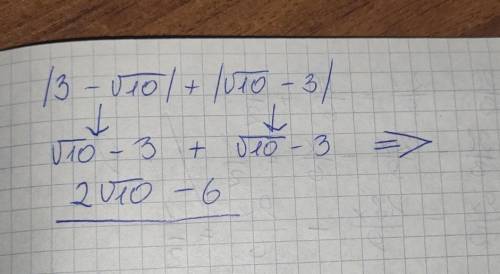 |3 - √10| + |√10 - 3|
↓ ↓
√10 - 3 + √10 - 3 ⇒
2√10 - 6